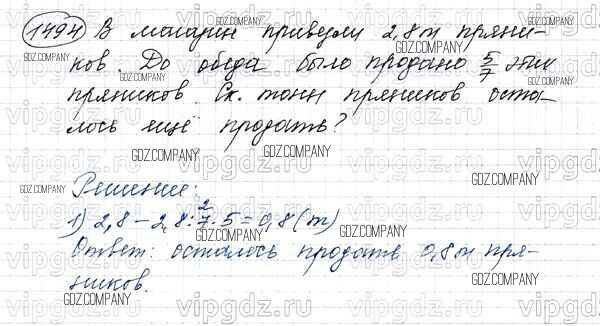 1494 В магазин привезли 2,8 т пряни-
ков. До обеда было продано 5/7 этих
пряников. Ск. тонн пряников оста-
лось ещё продать?
Решение:
1) 2,8 – 2,8 : 7 · 5 = 0,8 (т)
Ответ: осталось продать 0,8 т пря-
ников.
GDZ.COMPANY
vipgdz.ru